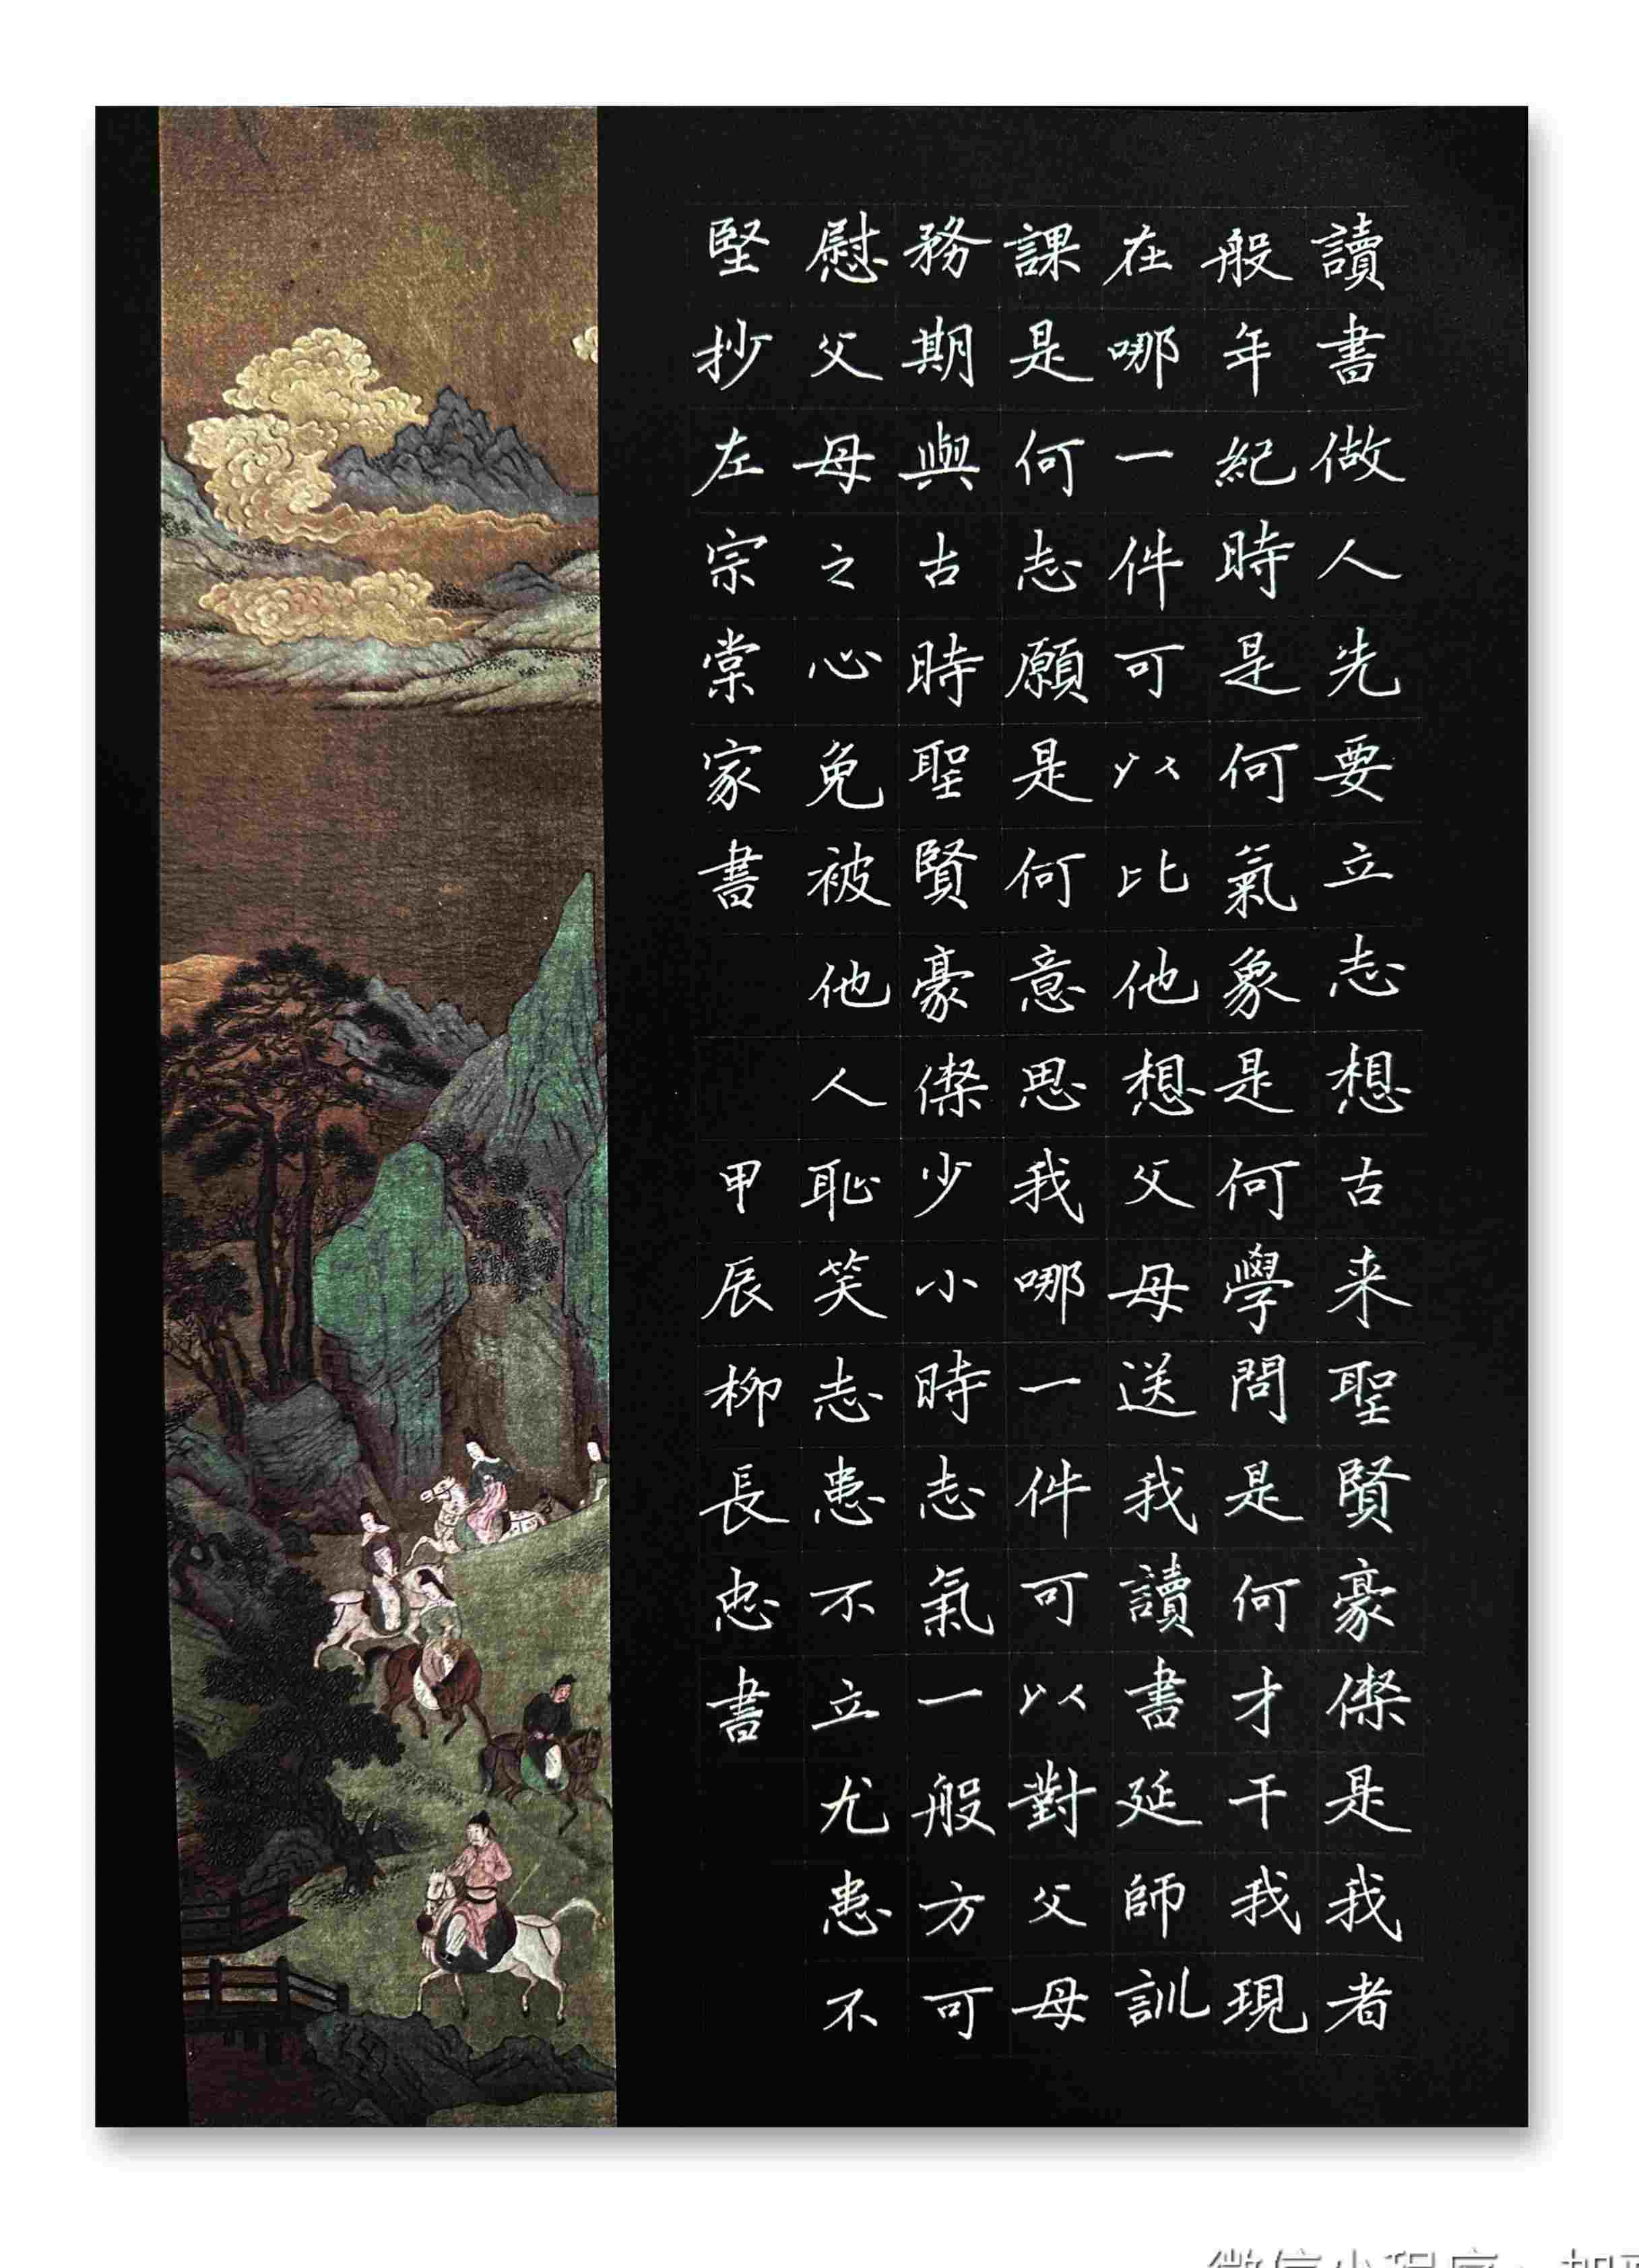 讀書做人先要立志想古来聖賢豪傑是我者
般年紀時是何氣象是何學問是何才干我現
在哪一件可以比他想父母送我讀書延師訓
課是何志願是何意思我哪一件可以對父母
務期與古時聖賢豪傑少小時志氣一般方可
慰父母之心免被他人恥笑志患不立尤患不
堅抄左宗棠家書 甲辰柳長忠書
微信小程序